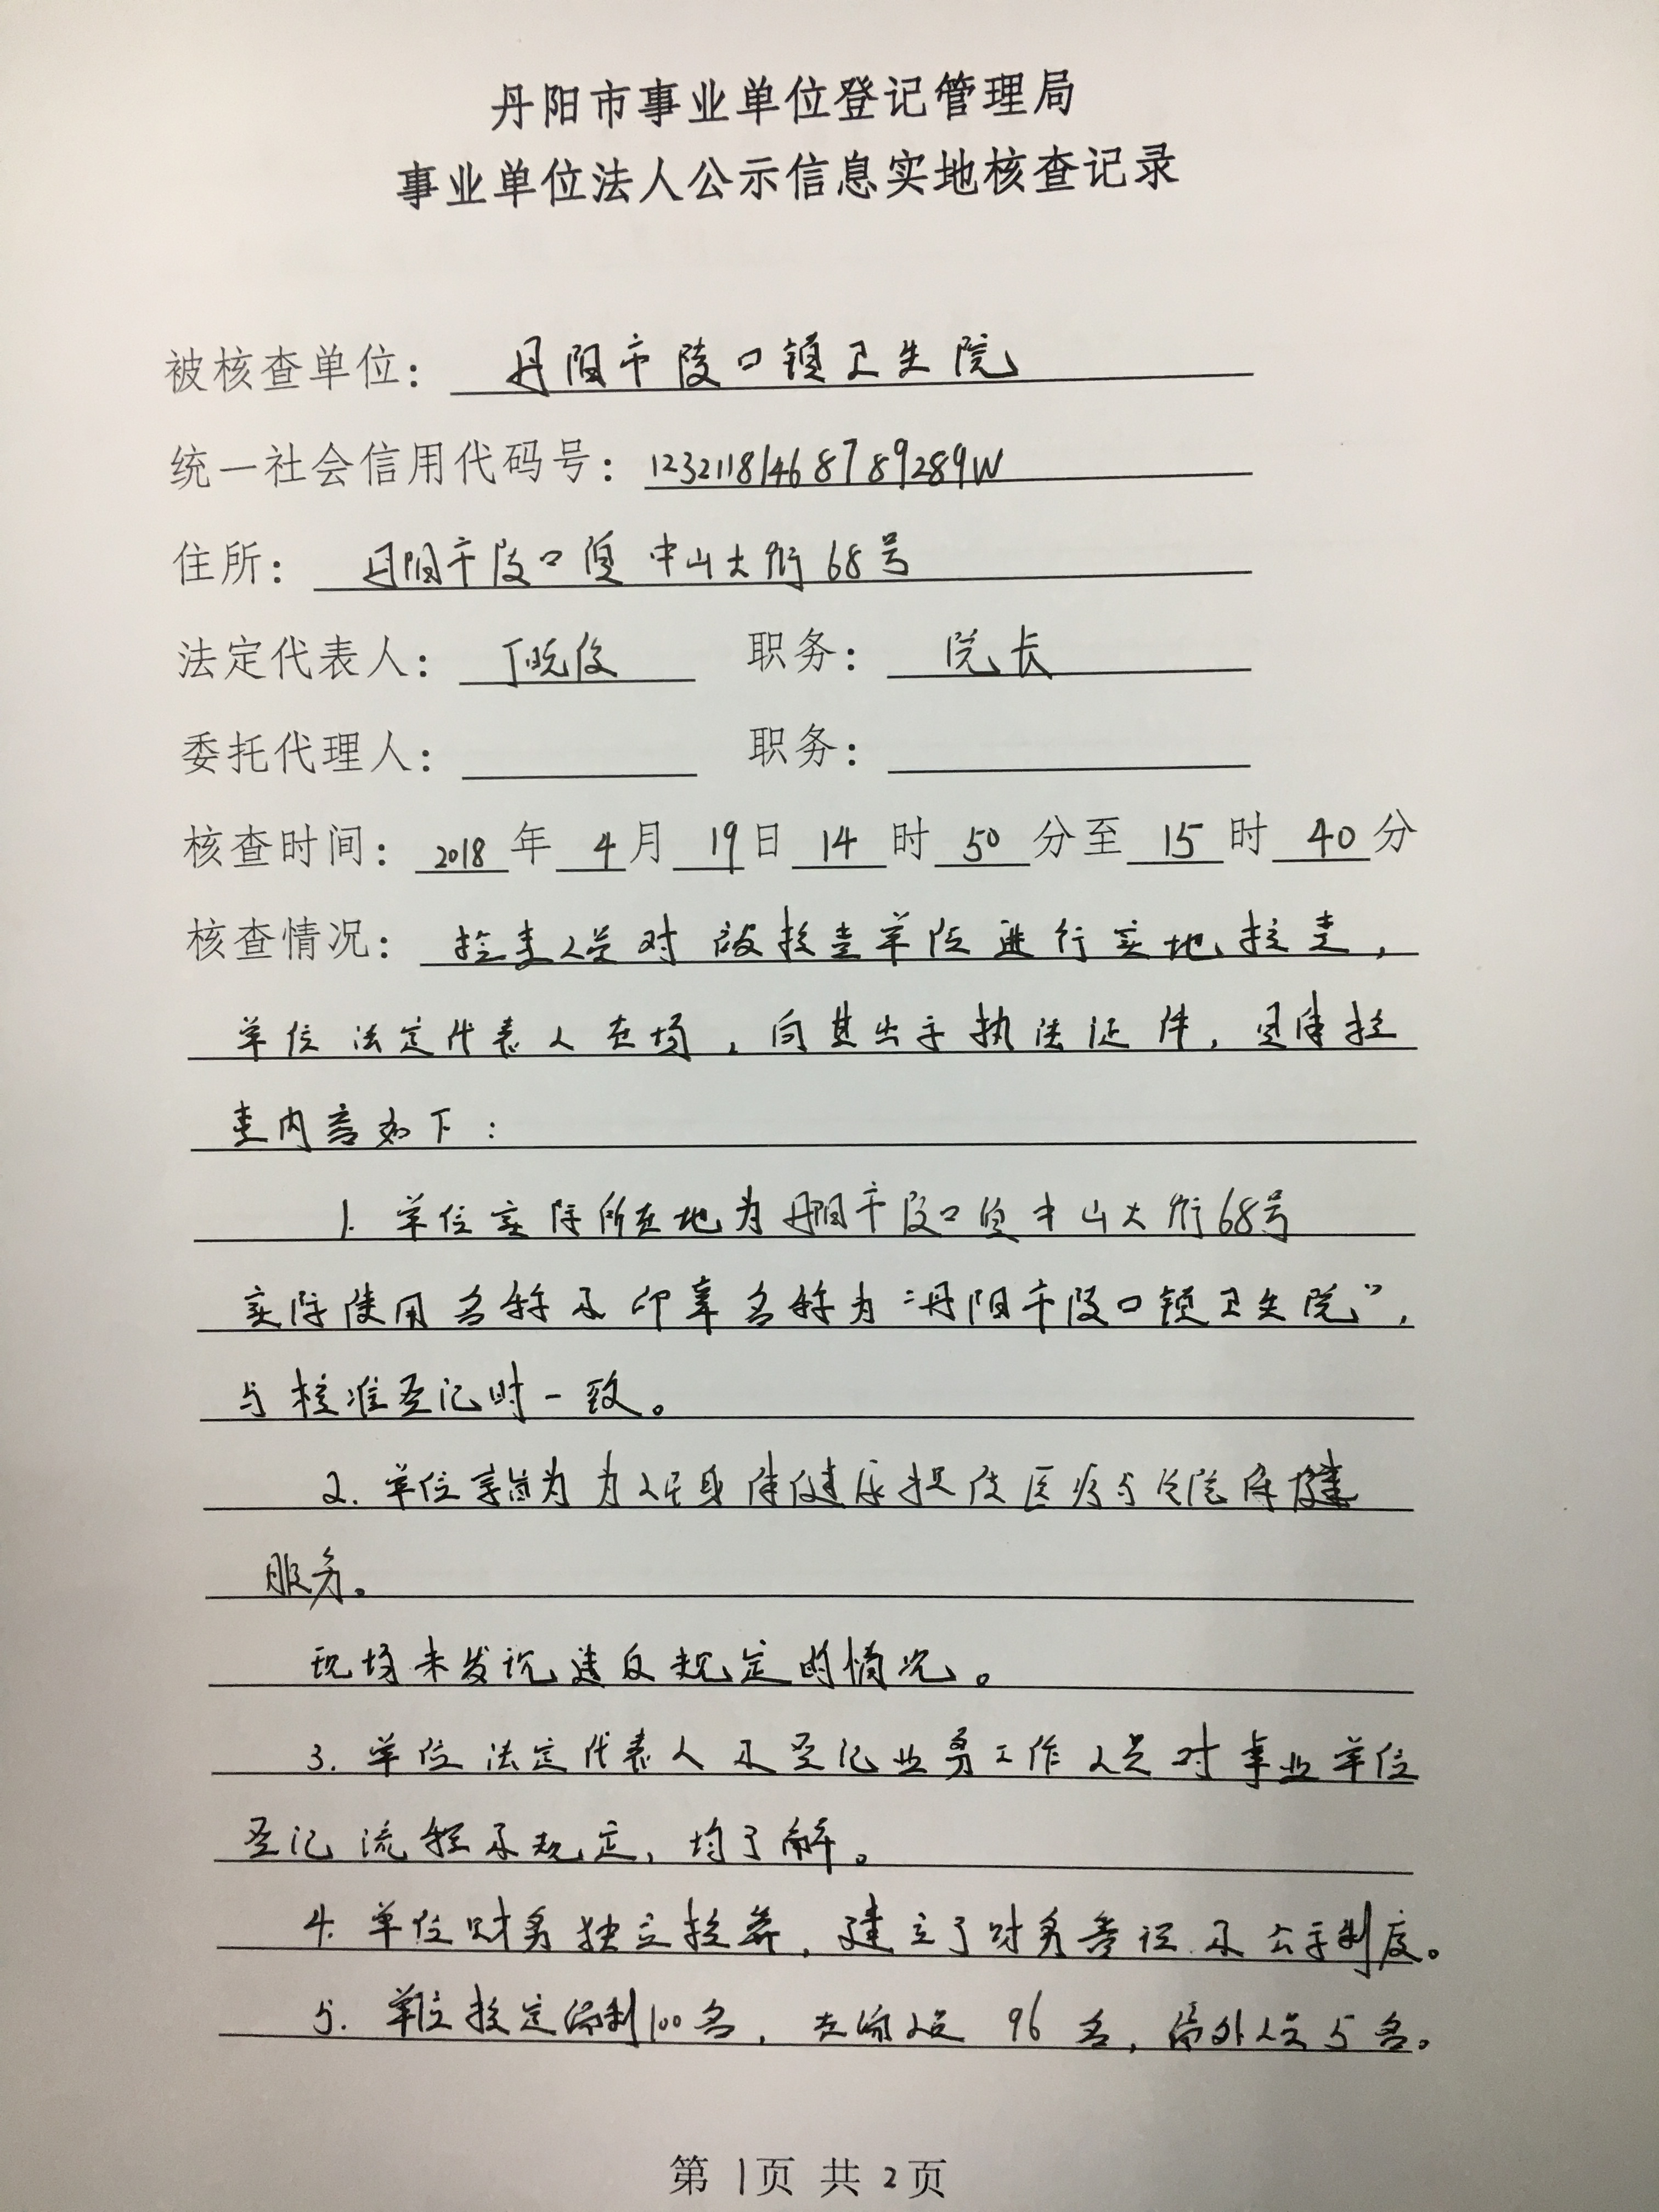 丹阳市事业单位登记管理局
事业单位法人公示信息实地核查记录
被核查单位：丹阳市陵口镇卫生院
统一社会信用代码号：12321181468789289W
住所：丹阳市陵口镇中山大街68号
法定代表人：丁晓俊 职务：院长
委托代理人： 职务：
核查时间：2018年4月19日14时50分至15时40分
核查情况：检查人员对被核查单位进行实地核查，
单位法定代表人在场，向其出示执法证件，具体核
查内容如下：
1. 单位实际所在地为丹阳市陵口镇中山大街68号
实际使用名称及印章名称为“丹阳市陵口镇卫生院”，
与核准登记时一致。
2. 单位为人民身体健康提供医疗与保健
服务。
现场未发现违反规定的情况。
3. 单位法定代表人及登记业务工作人员对事业单位
登记流程及规定，均了解。
4. 单位财务独立核算，建立了财务及公示制度。
5. 单位核定编制100名，在编人员96名，编外人员5名。
第1页 共2页